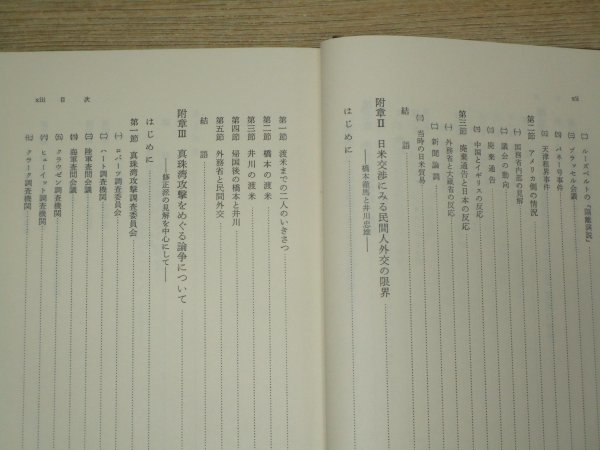 xii
㈡ ルーズベルトの「隔離演説」
㈢ ブラッセル会議
㈣ パネー号事件
㈤ 天津租界事件
第二節 アメリカ側の情況
㈠ 国務省内部の見解
㈡ 議会の動向
㈢ 廃棄通告
㈣ 中国とイギリスの反応
第三節 廃棄通告と日本の反応
㈠ 外務省と大蔵省の反応
㈡ 新聞論調
㈢ 当時の日米貿易
結語
附章Ⅱ 日米交渉にみる民間人外交の限界
——橋本徹馬と井川忠雄——
はじめに
第一節 渡米までの二人のいきさつ
第二節 橋本の渡米
第三節 井川の渡米
第四節 帰国後の橋本と井川
第五節 外務省と民間外交
結語
附章Ⅲ 真珠湾攻撃をめぐる論争について
——修正派の見解を中心にして——
はじめに
第一節 真珠湾攻撃調査委員会
㈠ ロバーツ調査委員会
㈡ ハート調査機関
㈢ 陸軍査問会議
㈣ 海軍査問会議
㈤ クラウゼン調査機関
㈥ ヒューイット調査機関
㈦ クラーク調査機関
xiii 目次